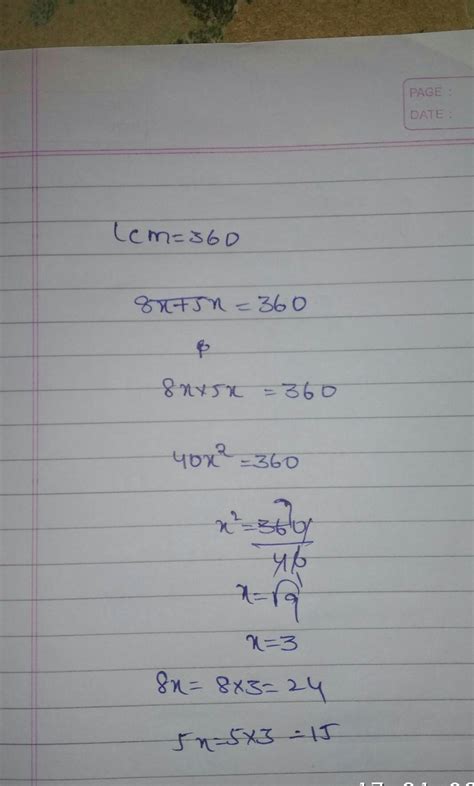 PAGE :
DATE :
Lcm=360
8x+5x=360
8x×5x=360
40x²=360
x²=360/40
x=√9
x=3
8x=8×3=24
5x=5×3=15